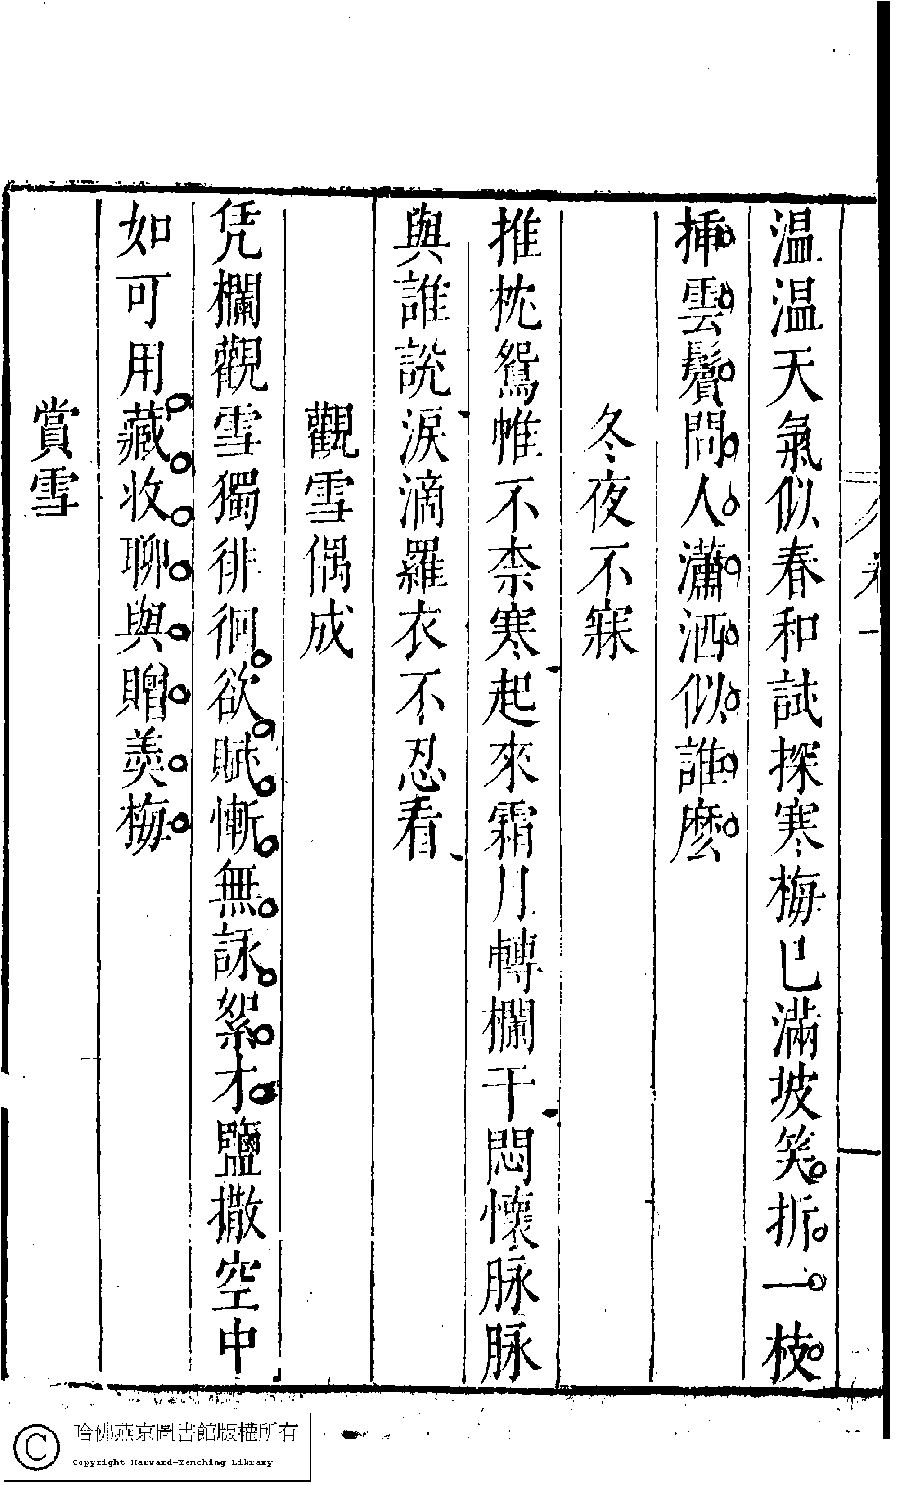 溫溫天氣似春和試探寒梅已滿坡笑折一枝
挿雲鬢問人瀟洒似誰麽
冬夜不寐
推枕鴛帷不柰寒起來霜月轉欄干悶懷脉脉
與誰説淚滴羅衣不忍看
觀雪偶成
凭欄觀雪獨徘徊欲賦慚無詠絮才鹽撒空中
如可用藏收聊與贈羮梅
賞雪
哈佛燕京圖書館版權所有
Copyright Harvard-Yenching Library